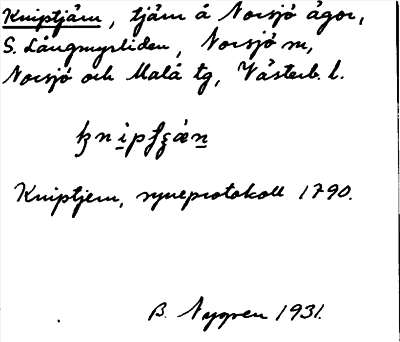 Kniptjärn, tjärn å Norsjö ägor,
S. Långmyrliden, Norsjö sn,
Norsjö och Malå tg, Västerb. l.
Kniptjern, syneprotokoll 1790.
B. Nygren 1931.